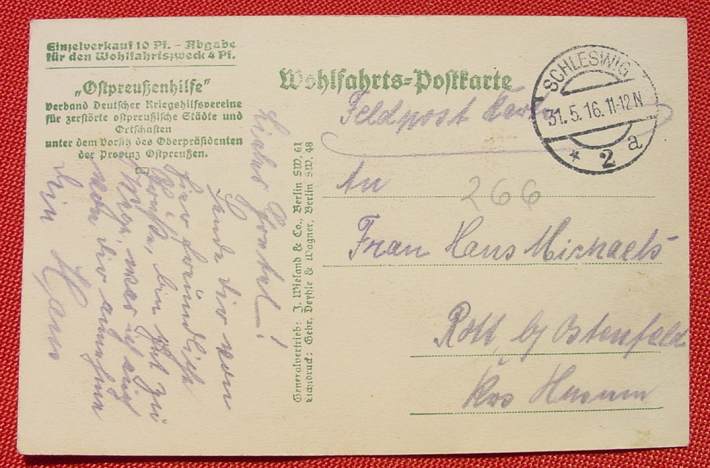 Einzelverkauf 10 Pf. – Abgabe
für den Wohlfahrtszweck 4 Pf.
„Ostpreußenhilfe“
Verband Deutscher Kriegshilfsvereine
für zerstörte ostpreußische Städte und
Ortschaften
unter dem Vorsitz des Oberpräsidenten
der Provinz Ostpreußen.
Wohlfahrts-Postkarte
Feldpost Karte
SCHLESWIG
31.5.16. 11-12 N
* 2 a
266
An
Frau Hans Michaels
Rott by Ostenfeld
Krs Husum
Generalvertrieb: J. Wieland & Co., Berlin SW. 61
Lichtdruck: Gebr. Deyhle & Wagner, Berlin SW. 48
Liebes
Sende dir von
hier freundlich
Grüße, bin gut zu
was ich auch
von dir annehme
Dein Hans